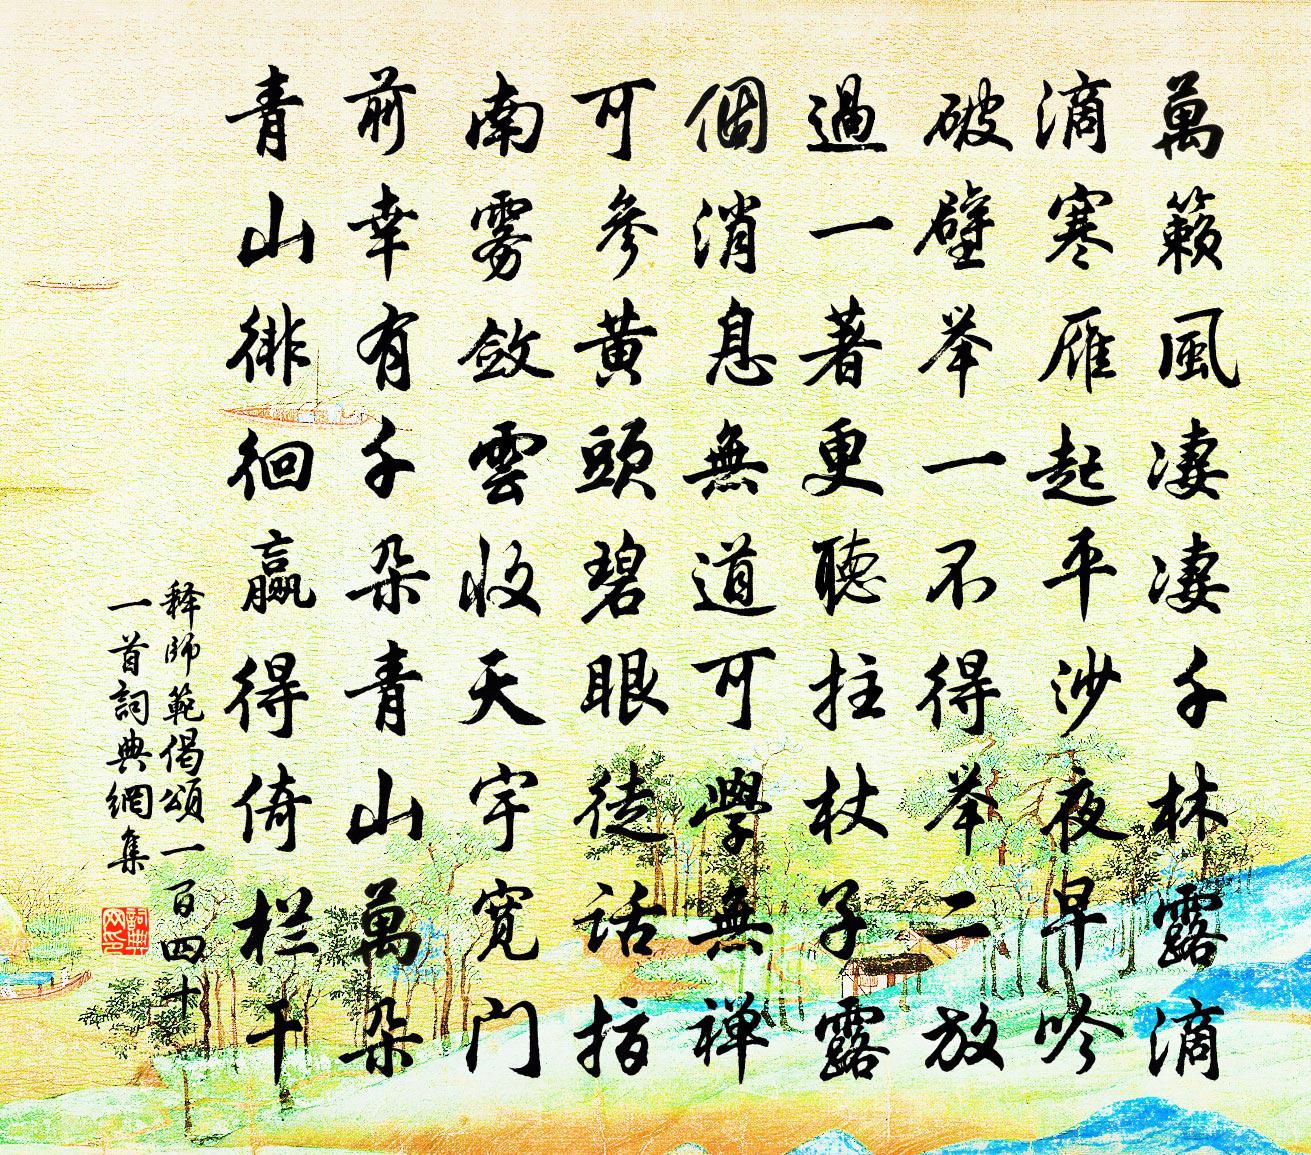 萬籟風凄凄千林露滴
滴寒雁起平沙夜早吟
破壁举一不得举二放
過一著更聽拄杖子露
個消息無道可學無禅
可參黄頭碧眼徒話指
南雾斂雲收天宇寬门
前幸有千朵青山萬朵
青山徘徊赢得倚栏干
释師範偈頌一百四十
一首詞典網集
詞典网印